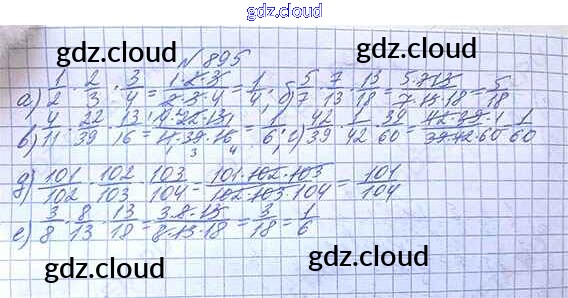 gdz.cloud
gdz.cloud gdz.cloud
№ 895
а) 1/2 · 2/3 · 3/4 = 1·2·3/2·3·4 = 1/4; б) 5/7 · 7/13 · 13/18 = 5·7·13/7·13·18 = 5/18
в) 4/11 · 22/39 · 13/16 = 4·22·13/11·39·16 = 1/6; г) 42/39 · 1/42 · 39/60 = 42·39·1/39·42·60 = 1/60
д) 101/102 · 102/103 · 103/104 = 101·102·103/102·103·104 = 101/104
е) 3/8 · 8/13 · 13/18 = 3·8·13/8·13·18 = 3/18 = 1/6
gdz.cloud gdz.cloud